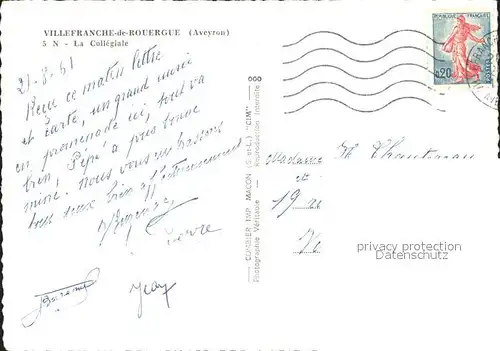 VILLEFRANCHE-de-ROUERGUE (Aveyron)
5 N - La Collégiale
21-8-61
Reçu ce matin lettre
et carte, un grand merci
en promenade ici, tout va
bien, Pépé a très bonne
mine. Nous vous embrassons
tous deux bien affectueusement
Pierre
Jean
COMBIER IMP. MACON (S.-et-L.) "CIM"
Photographie Véritable - Reproduction Interdite
REPUBLIQUE FRANÇAISE
0,20
POSTES
Madame
et
19
privacy protection
datenschutz